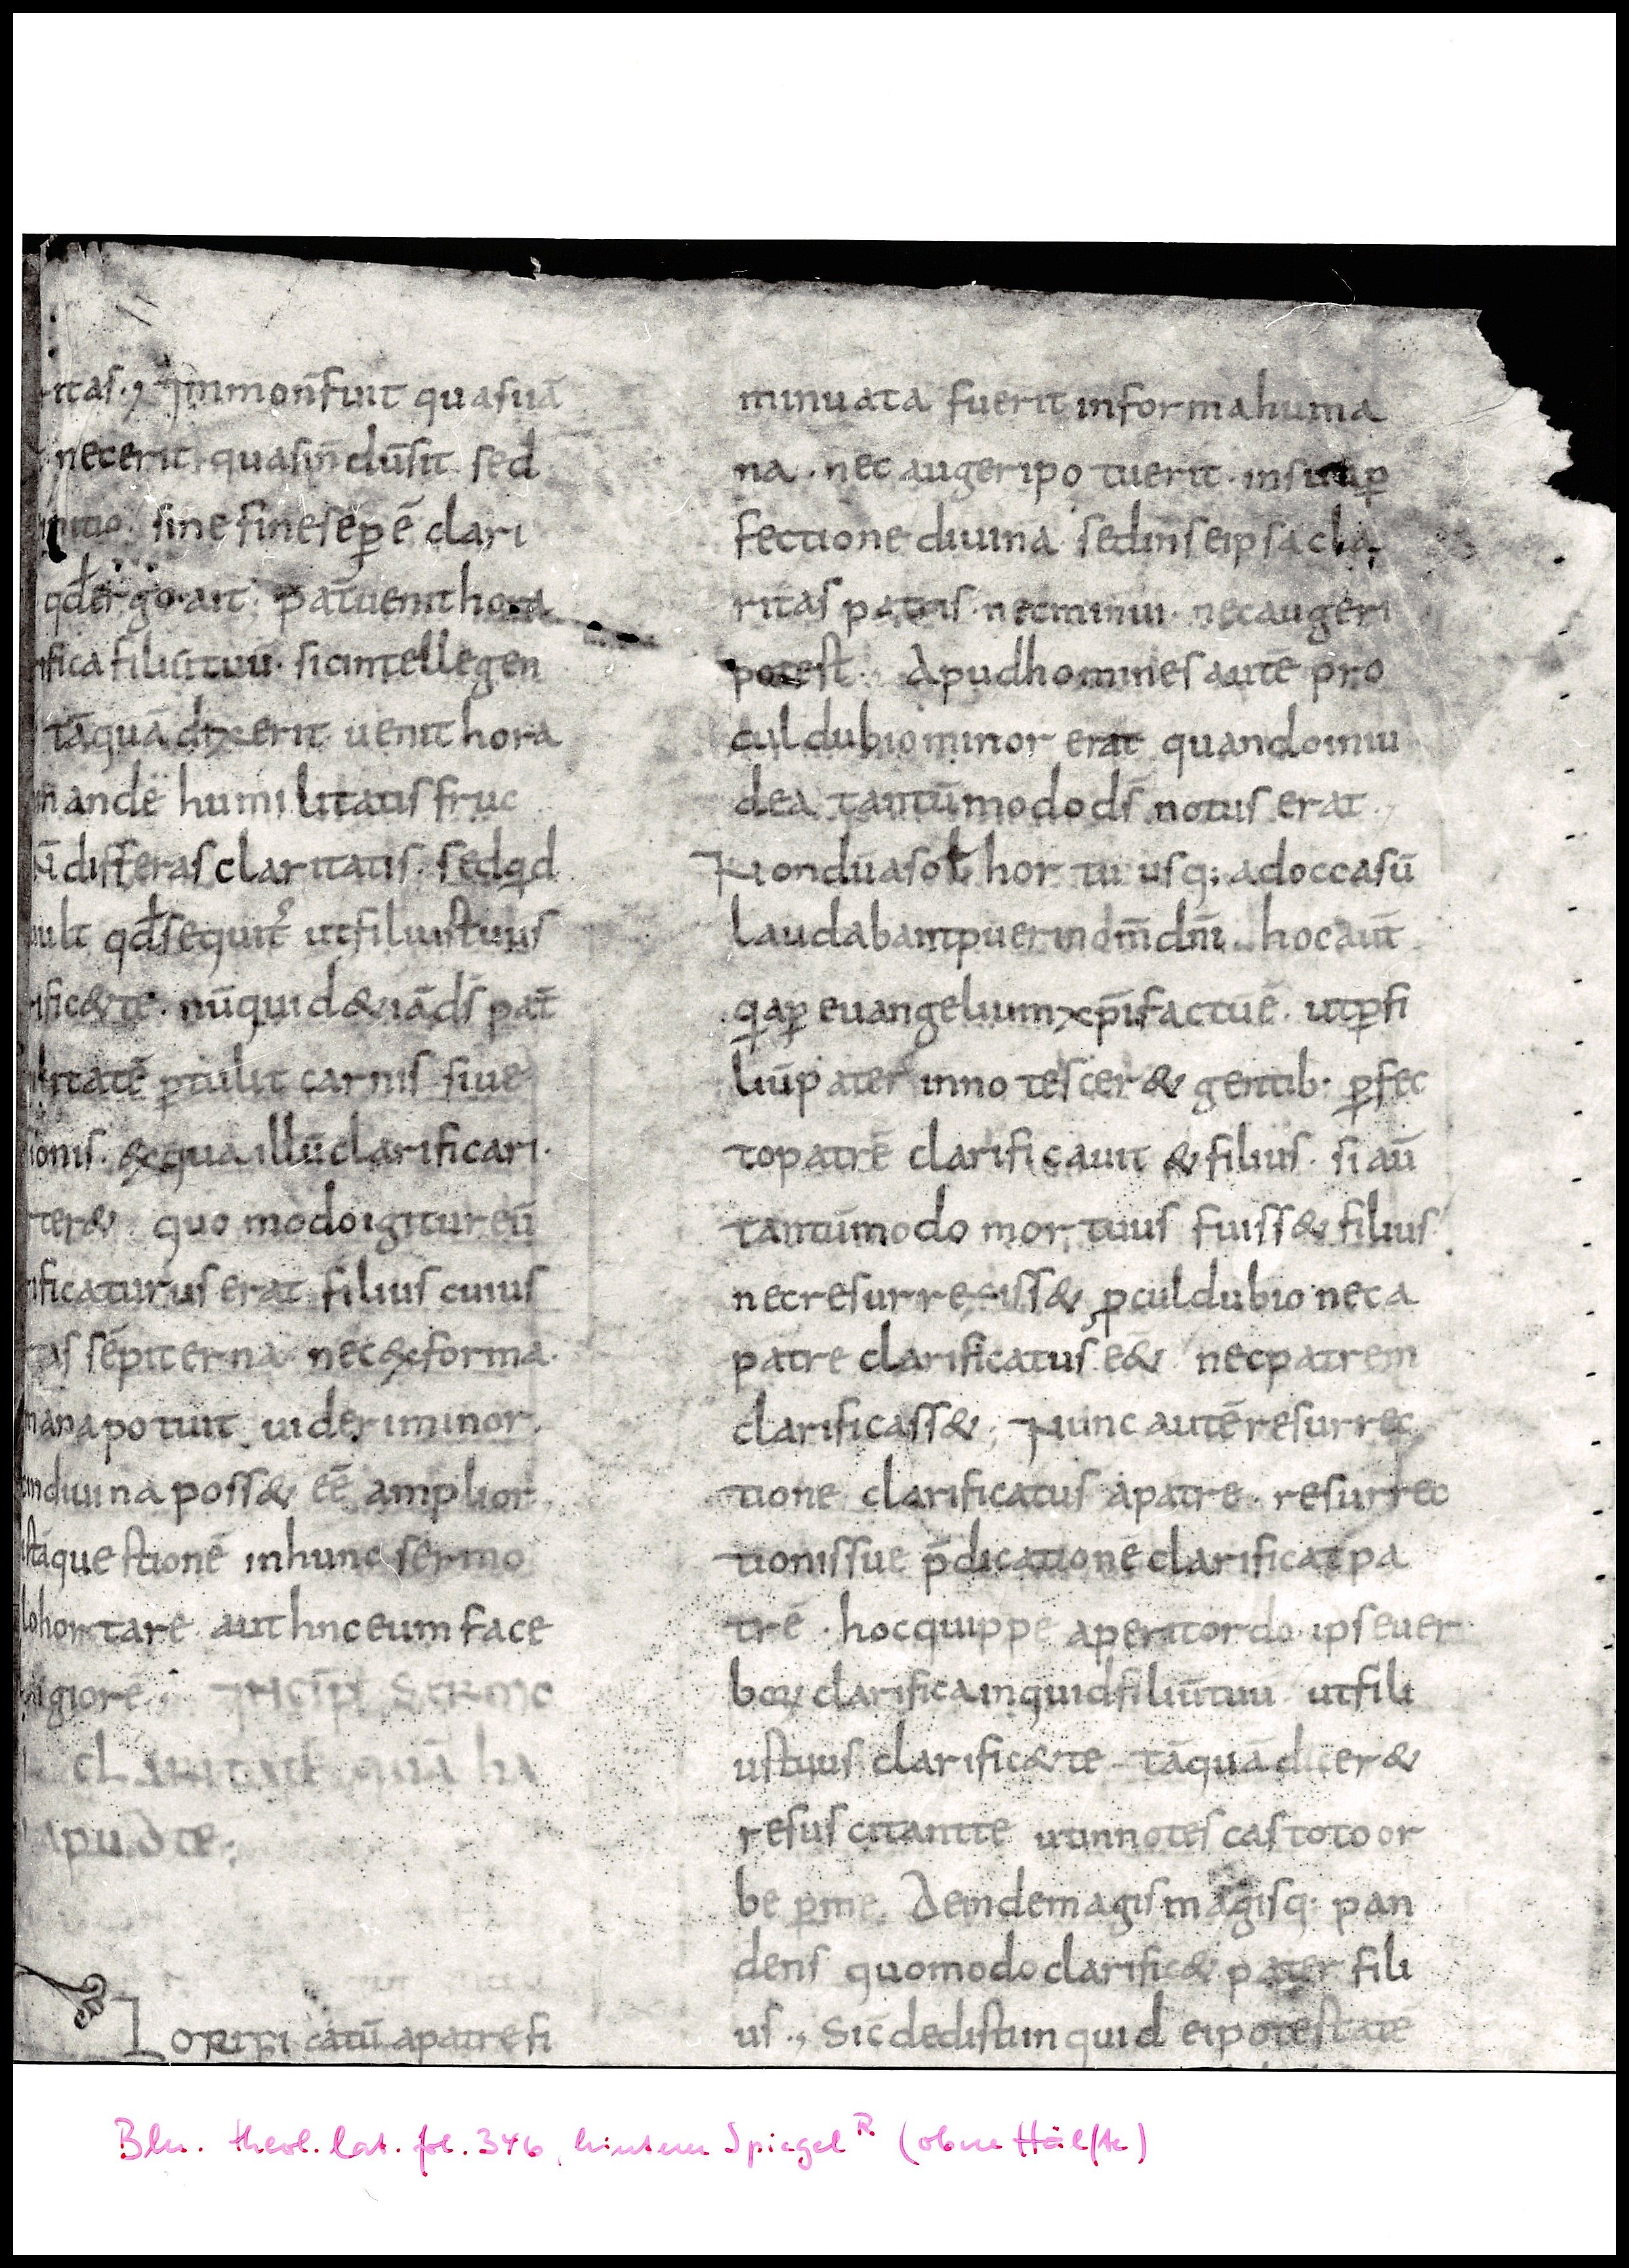 ritas·, Immo nͫ fuit quasuā
nec erit quasin̄dūsit sed
initio· sine fine sēp̲ ē clari
qđ ergo ait· pat̄ uenit hora
ifica filiū tuū· sic intellegen
tāquā dixerit uenit hora
ande humilitatis fruc
ū differas claritatis· sed qd
uult qđ sequit᷒ ut filius tuus
rific& te· nūquid & iā dš pat̄
ilitatē p̲tulit carnis siue
ionis· ex qua illū clarificari·
rter& quo modo igitur eū
ificaturus erat filius cuius
tas sēpiterna nec ex forma·
mana potuit uideri minor·
in diuina poss& ēē amplior
istā questionē in hunc sermo
lo hortare aut hinc eum face
igiorē· INCIP̄ SERMO
CLARITATE quā ha
apud te·,
Lorifi catū apatre fi
minuata fuerit in forma huma
na· nec augeri potuerit· insua p̲
fectione diuina sed in se ipsa cla
ritas patris· nec minui· nec augeri
potest· Apud homines autē pro
cul dubio minor erat quando in iu
dea tantūmodo dš notus erat·
Nondū a solis hor tu usq; ad occasū
laudabant pueri nom̄ dn̄i· hoc aut̄
q̲a p̲ euangelium xp̄i factū ē· ut p̲ fi
liū pater innotescer& gentib· p̲fec
to patrē clarificauit & filius· si aū
tantūmodo mortuus fuiss& filius
nec resurrexiss& ꝓcul dubio nec a
patre clarificatus ēē& nec patrem
clarificass&; Nunc autē resurrec
tione clarificatus a patre· resurrec
tionis sue p̄dicationē clarificat pa
trē· hoc quippe aperit ordo ipse uer
boꝝ clarifica inquid filiū tuū ut fili
us tuus clarific& te tāquā dicer&
resuscitante ut innotescas toto or
be p̲ me· Deinde magis magisq· pan
dens quomodo clarific& pater fili
us·, Sic̄ dedisti inquid ei potestatē
Bln. theol. lat. fol. 346, hinterer Spiegel R (obere Hälfte)